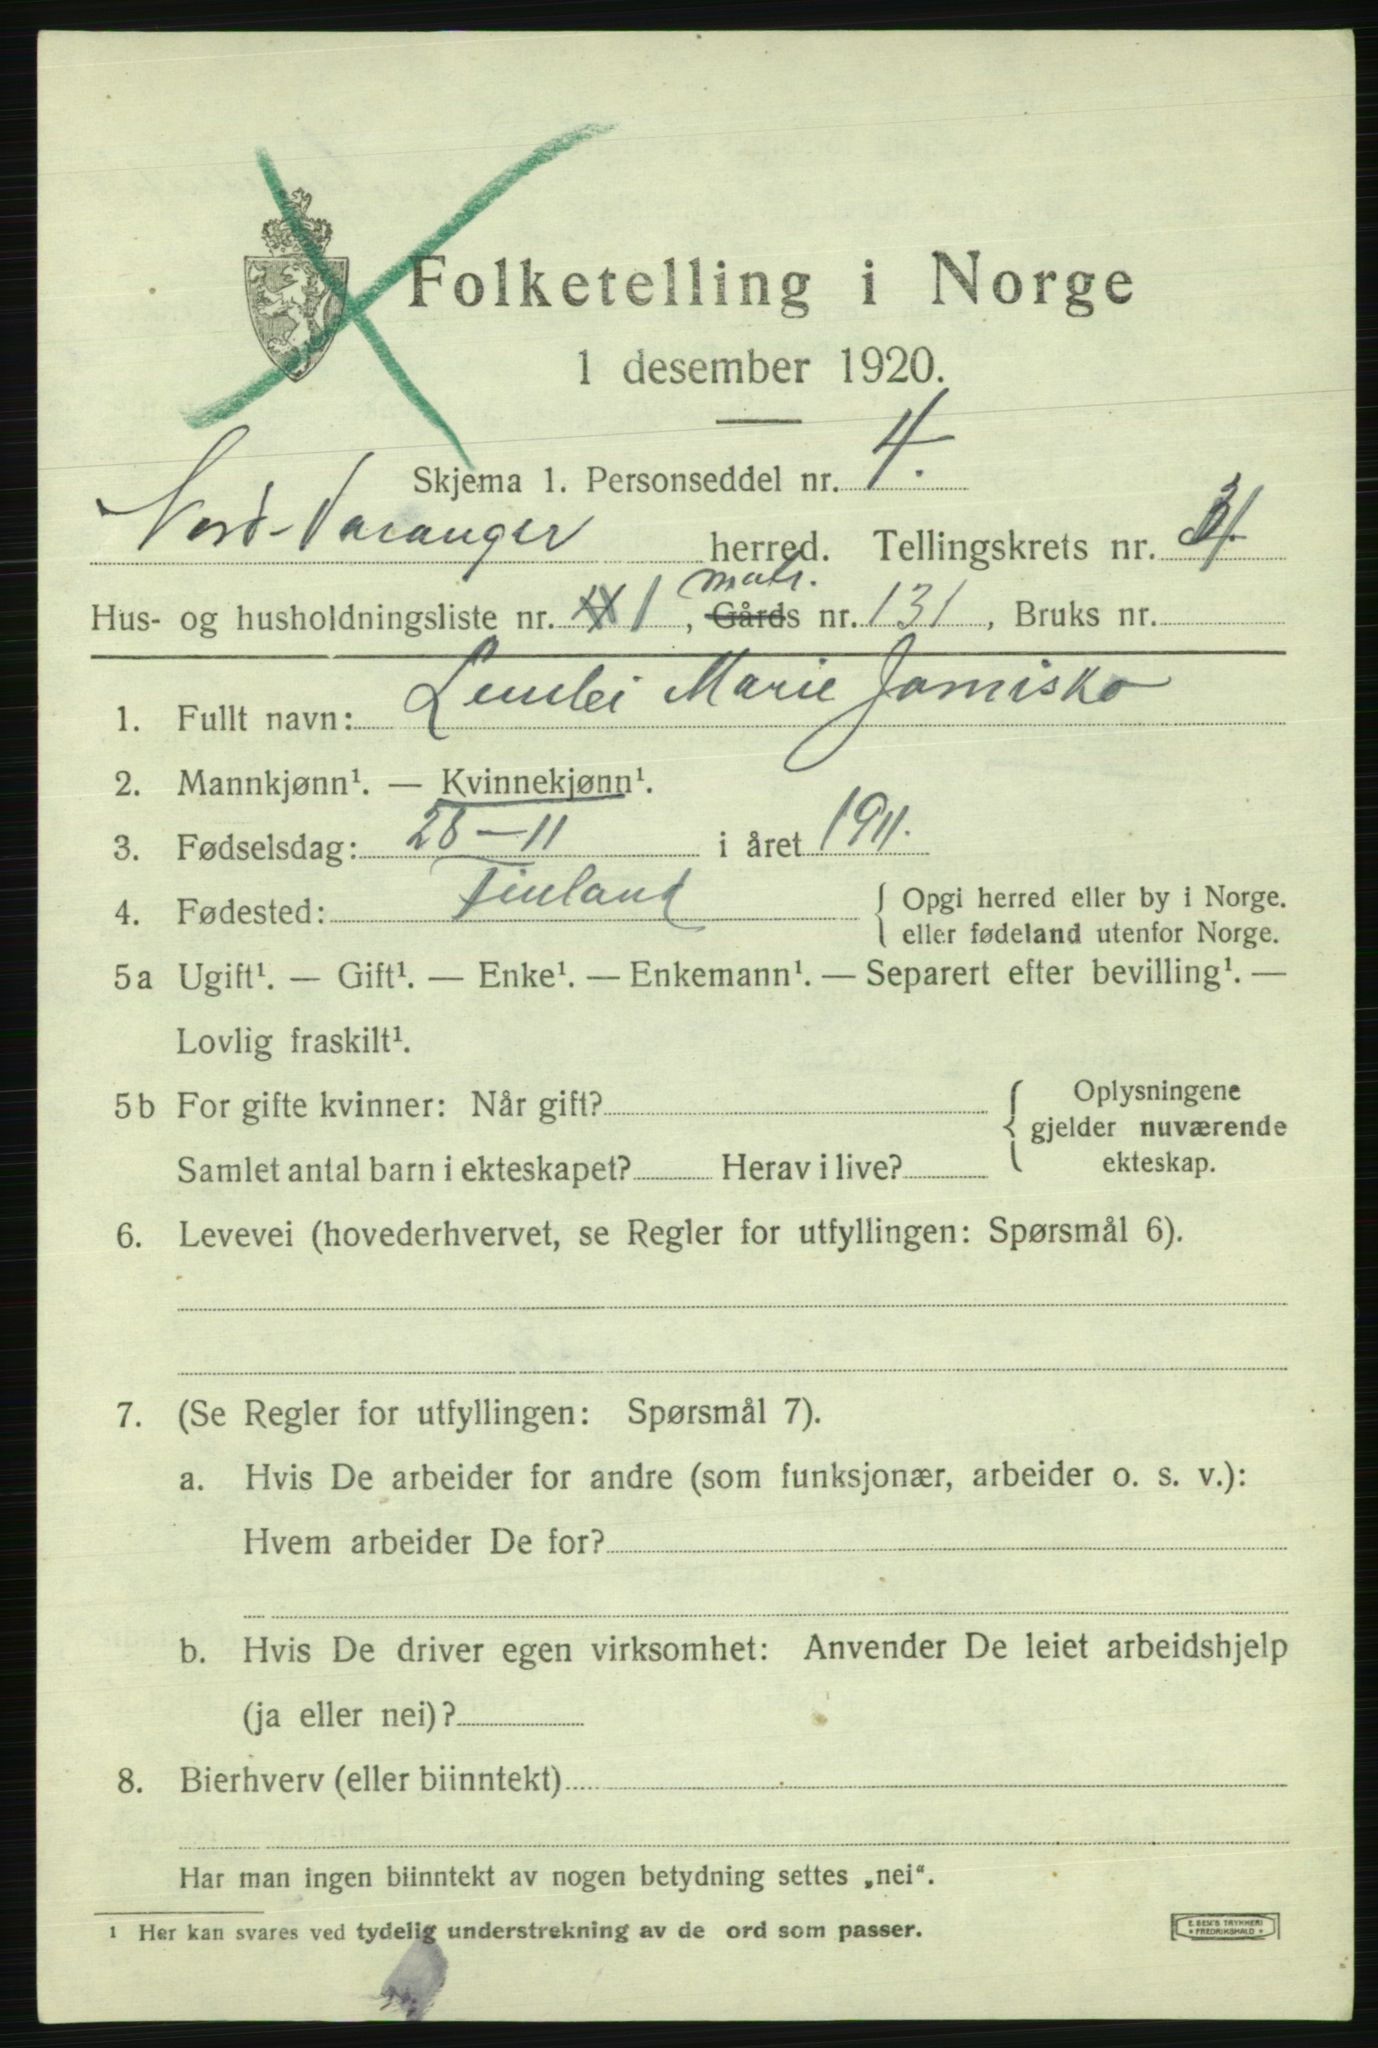 Folketelling i Norge
1 desember 1920.
Skjema 1. Personseddel nr. 4.
Nord-Varanger herred. Tellingskrets nr.
matr.
Hus- og husholdningsliste nr. 1, Gårds nr. 131, Bruks nr.
1. Fullt navn: Marie Jomisko
2. Mannkjønn¹. — Kvinnekjønn¹.
3. Fødselsdag: 26-11 i året 1911.
4. Fødested: Finland { Opgi herred eller by i Norge.
eller fødeland utenfor Norge.
5a Ugift¹. — Gift¹. — Enke¹. — Enkemann¹. — Separert efter bevilling¹. —
Lovlig fraskilt¹.
5b For gifte kvinner: Når gift? { Oplysningene
gjelder nuværende
Samlet antal barn i ekteskapet? Herav i live? ekteskap.
6. Levevei (hovederhvervet, se Regler for utfyllingen: Spørsmål 6).
7. (Se Regler for utfyllingen: Spørsmål 7).
a. Hvis De arbeider for andre (som funksjonær, arbeider o. s. v.):
Hvem arbeider De for?
b. Hvis De driver egen virksomhet: Anvender De leiet arbeidshjelp
(ja eller nei)?
8. Bierhverv (eller biinntekt)
Har man ingen biinntekt av nogen betydning settes „nei“.
¹ Her kan svares ved tydelig understrekning av de ord som passer.
E. SEM'S TRYKKERI
FREDRIKSHALD